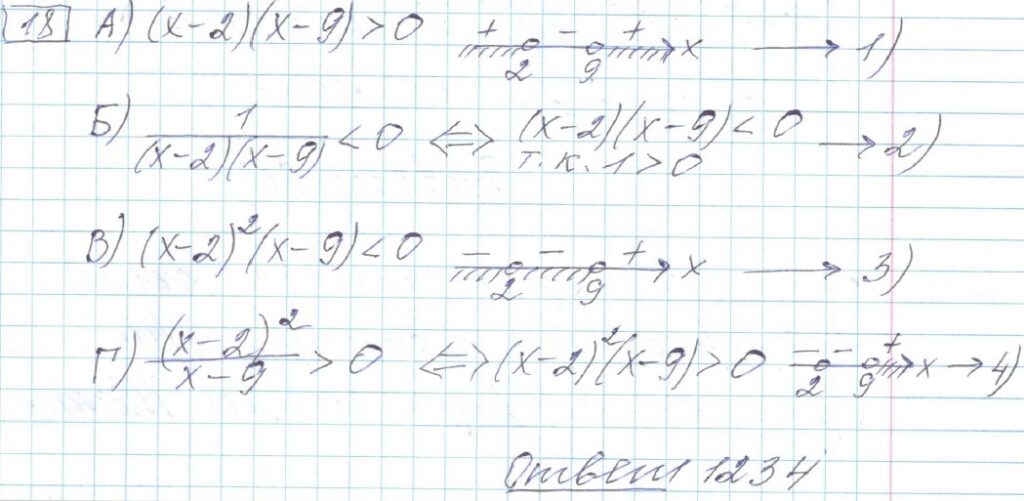 18 А) (x-2)(x-9)>0 + - + 2 9 x → 1)
Б) 1/((x-2)(x-9)) < 0 ⇔ (x-2)(x-9)<0 → 2)
т.к. 1>0
В) (x-2)²(x-9)<0 - - + 2 9 x → 3)
Г) (x-2)²/(x-9) > 0 ⇔ (x-2)²(x-9)>0 - - + 2 9 x → 4)
Ответ 1234